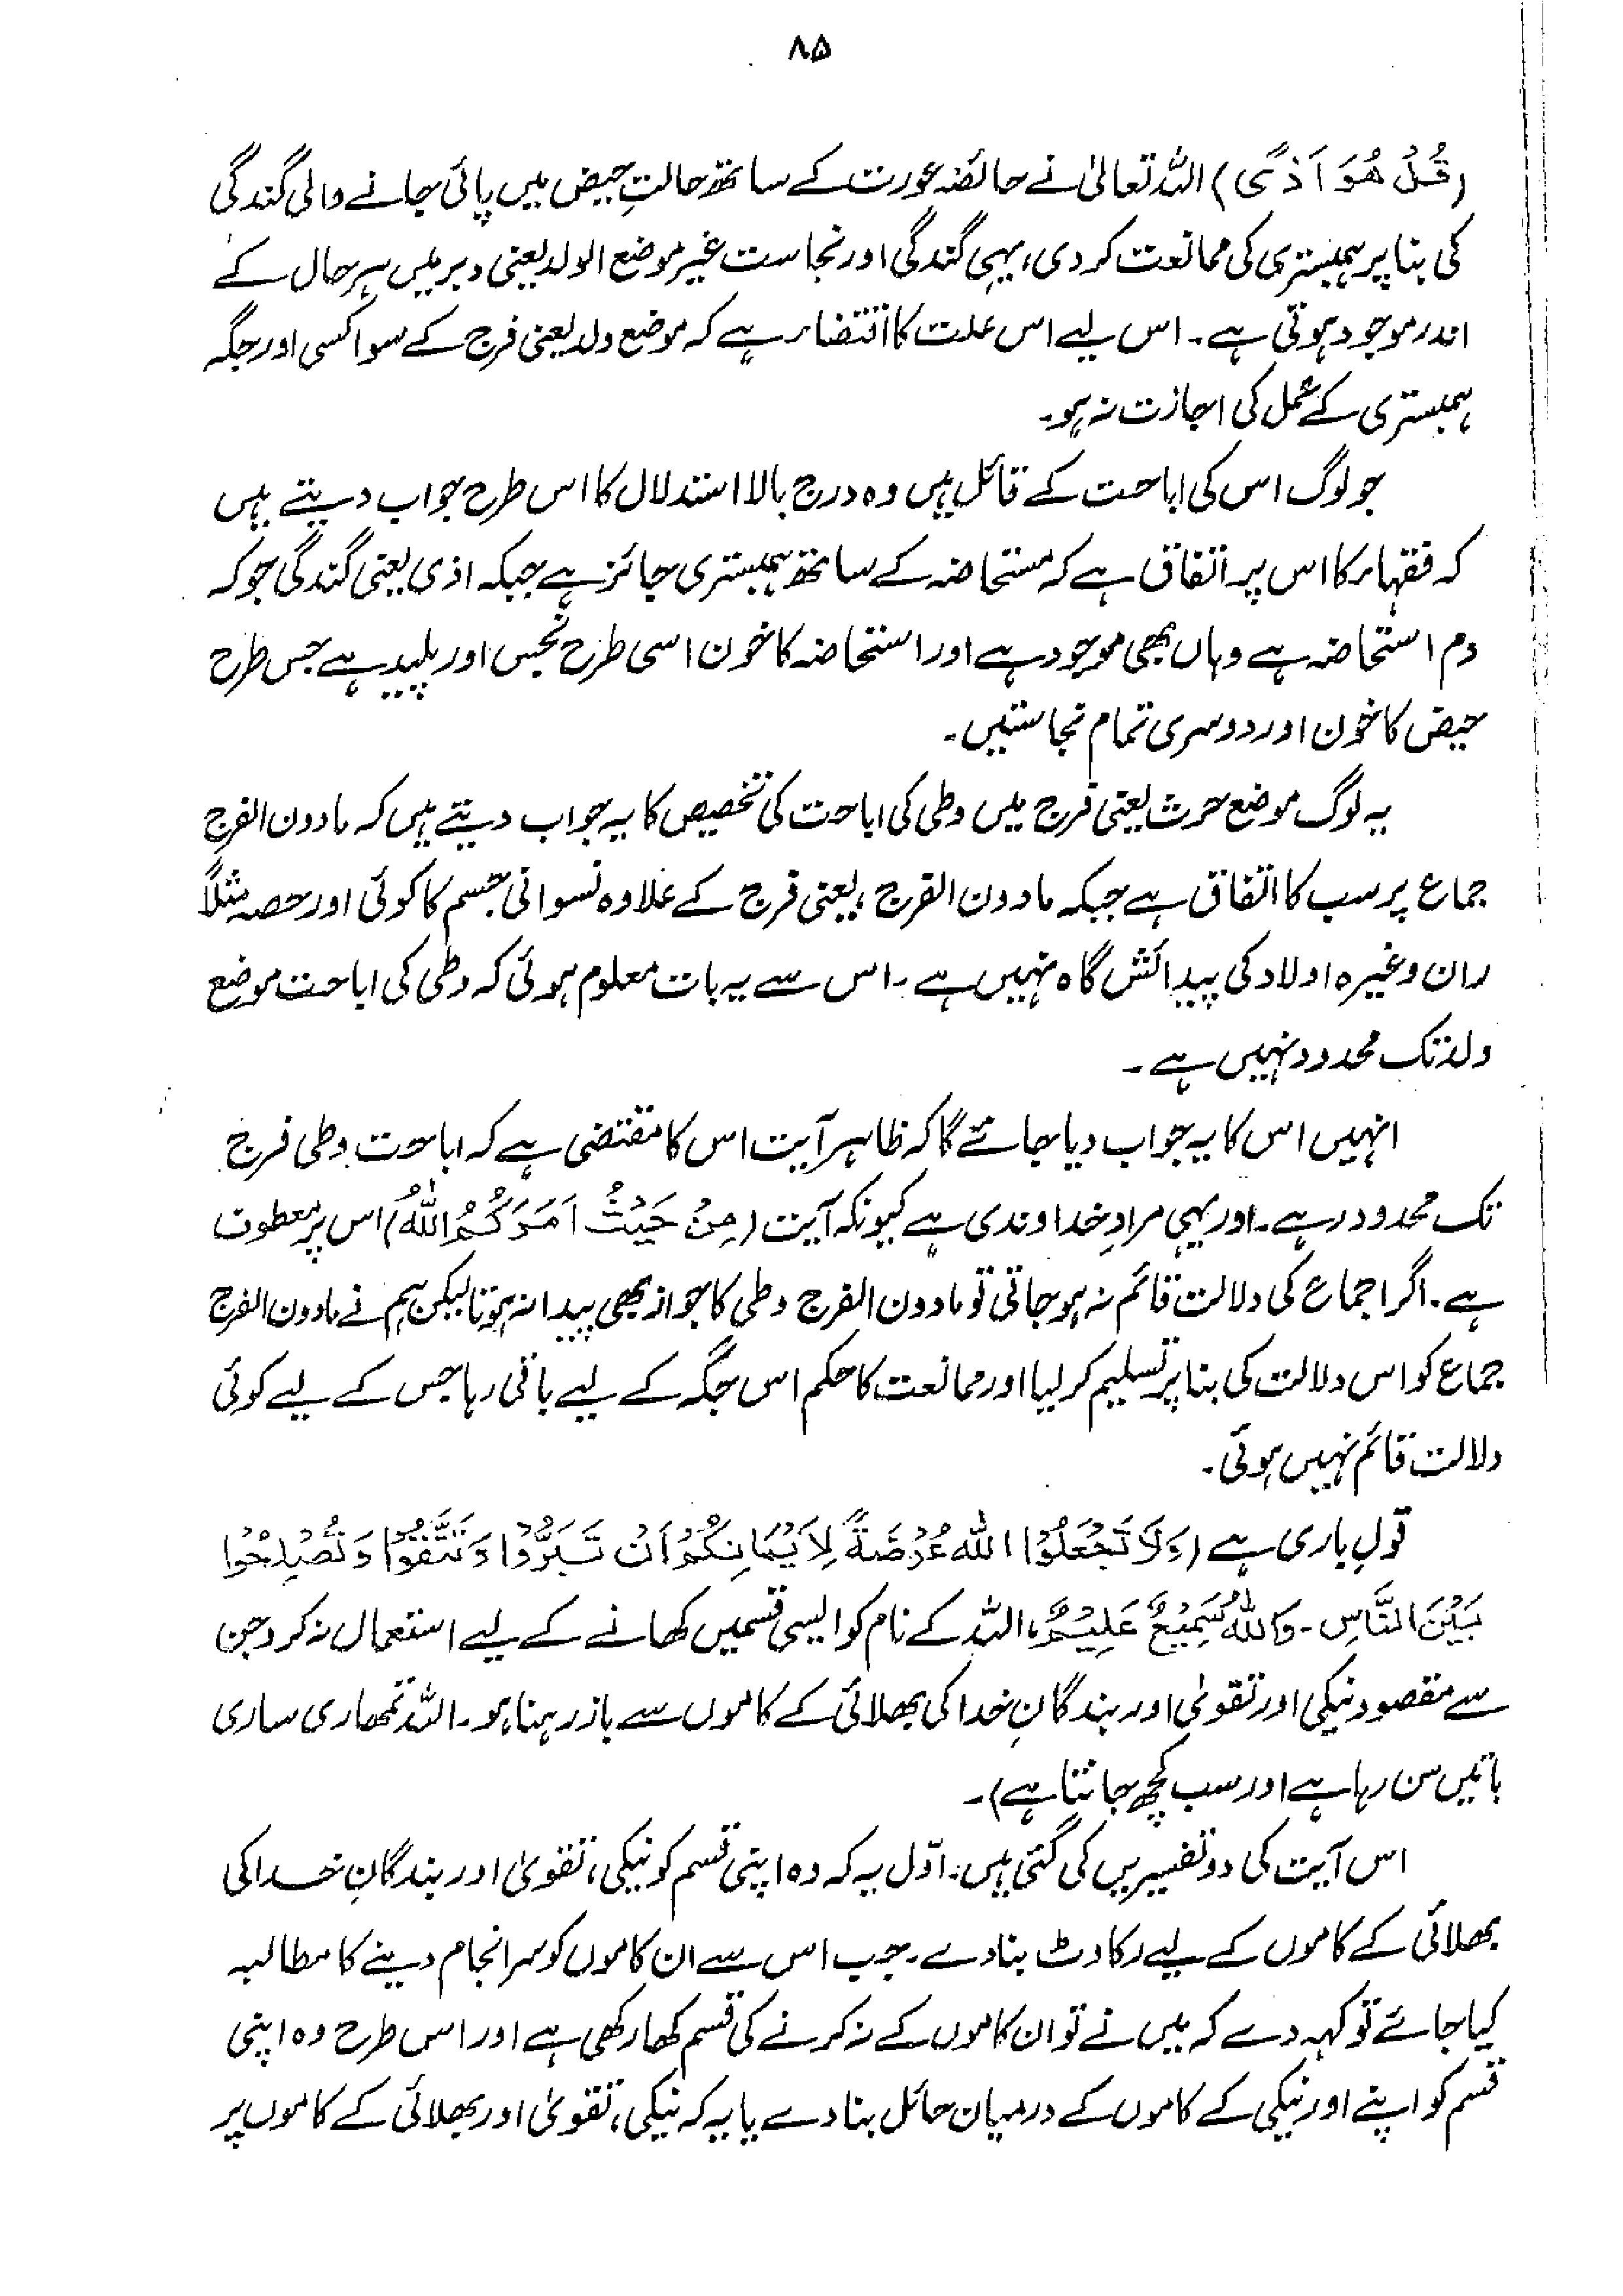 ۸۵
(قُلْ هُوَ اَذًی) اللہ تعالیٰ نے حائضہ عورت کے ساتھ حالتِ حیض میں پائی جانے والی گندگی
کی بنا پر ہمبستری کی ممانعت کر دی، یہی گندگی اور نجاست غیر موضع الولد یعنی دبر میں ہر حال کے
اندر موجود ہوتی ہے۔ اس لیے اس علت کا اقتضاء ہے کہ موضع ولد یعنی فرج کے سوا کسی اور جگہ
ہمبستری کے عمل کی اجازت نہ ہو۔
جو لوگ اس کی اباحت کے قائل ہیں وہ درج بالا استدلال کا اس طرح جواب دیتے ہیں
کہ فقہاء کا اس پر اتفاق ہے کہ مستحاضہ کے ساتھ ہمبستری جائز ہے جبکہ اذی یعنی گندگی جو کہ
دم استحاضہ ہے وہاں بھی موجود ہے اور استحاضہ کا خون اسی طرح نجس اور پلید ہے جس طرح
حیض کا خون اور دوسری تمام نجاستیں۔
یہ لوگ موضع حرث یعنی فرج میں وطی کی اباحت کی تخصیص کا یہ جواب دیتے ہیں کہ مادون الفرج
جماع پر سب کا اتفاق ہے جبکہ مادون الفرج، یعنی فرج کے علاوہ نسوانی جسم کا کوئی اور حصہ مثلاً
ران وغیرہ اولاد کی پیدائش گاہ نہیں ہے۔ اس سے یہ بات معلوم ہوئی کہ وطی کی اباحت موضع
ولد تک محدود نہیں ہے۔
انہیں اس کا یہ جواب دیا جائے گا کہ ظاہر آیت اس کا مقتضی ہے کہ اباحت وطی فرج
تک محدود رہے۔ اور یہی مرادِ خداوندی ہے کیونکہ آیت (مِنْ حَیْثُ اَمَرَکُمُ اللّٰہُ) اس پر معطوف
ہے۔ اگر اجماع کی دلالت قائم نہ ہو جاتی تو مادون الفرج وطی کا جواز بھی پیدا نہ ہوتا لیکن ہم نے مادون الفرج
جماع کو اس دلالت کی بنا پر تسلیم کر لیا اور ممانعت کا حکم اس جگہ کے لیے باقی رہا جس کے لیے کوئی
دلالت قائم نہیں ہوئی۔
قولِ باری ہے (وَلَا تَجْعَلُوا اللّٰہَ عُرْضَۃً لِاَیْمَانِکُمْ اَنْ تَبَرُّوْا وَتَتَّقُوْا وَتُصْلِحُوْا
بَیْنَ النَّاسِ۔ وَاللّٰہُ سَمِیْعٌ عَلِیْمٌ، اللہ کے نام کو ایسی قسمیں کھانے کے لیے استعمال نہ کرو جن
سے مقصود نیکی اور تقویٰ اور بندگانِ خدا کی بھلائی کے کاموں سے باز رہنا ہو۔ اللہ تمھاری ساری
باتیں سن رہا ہے اور سب کچھ جانتا ہے)۔
اس آیت کی دو تفسیریں کی گئی ہیں۔ اوّل یہ کہ وہ اپنی قسم کو نیکی، تقویٰ اور بندگانِ خدا کی
بھلائی کے کاموں کے لیے رکاوٹ بنادے۔ جب اس سے ان کاموں کو سرانجام دینے کا مطالبہ
کیا جائے تو کہہ دے کہ میں نے تو ان کاموں کے نہ کرنے کی قسم کھا رکھی ہے اور اس طرح وہ اپنی
قسم کو اپنے اور نیکی کے کاموں کے درمیان حائل بنا دے یا یہ کہ نیکی، تقویٰ اور بھلائی کے کاموں پر